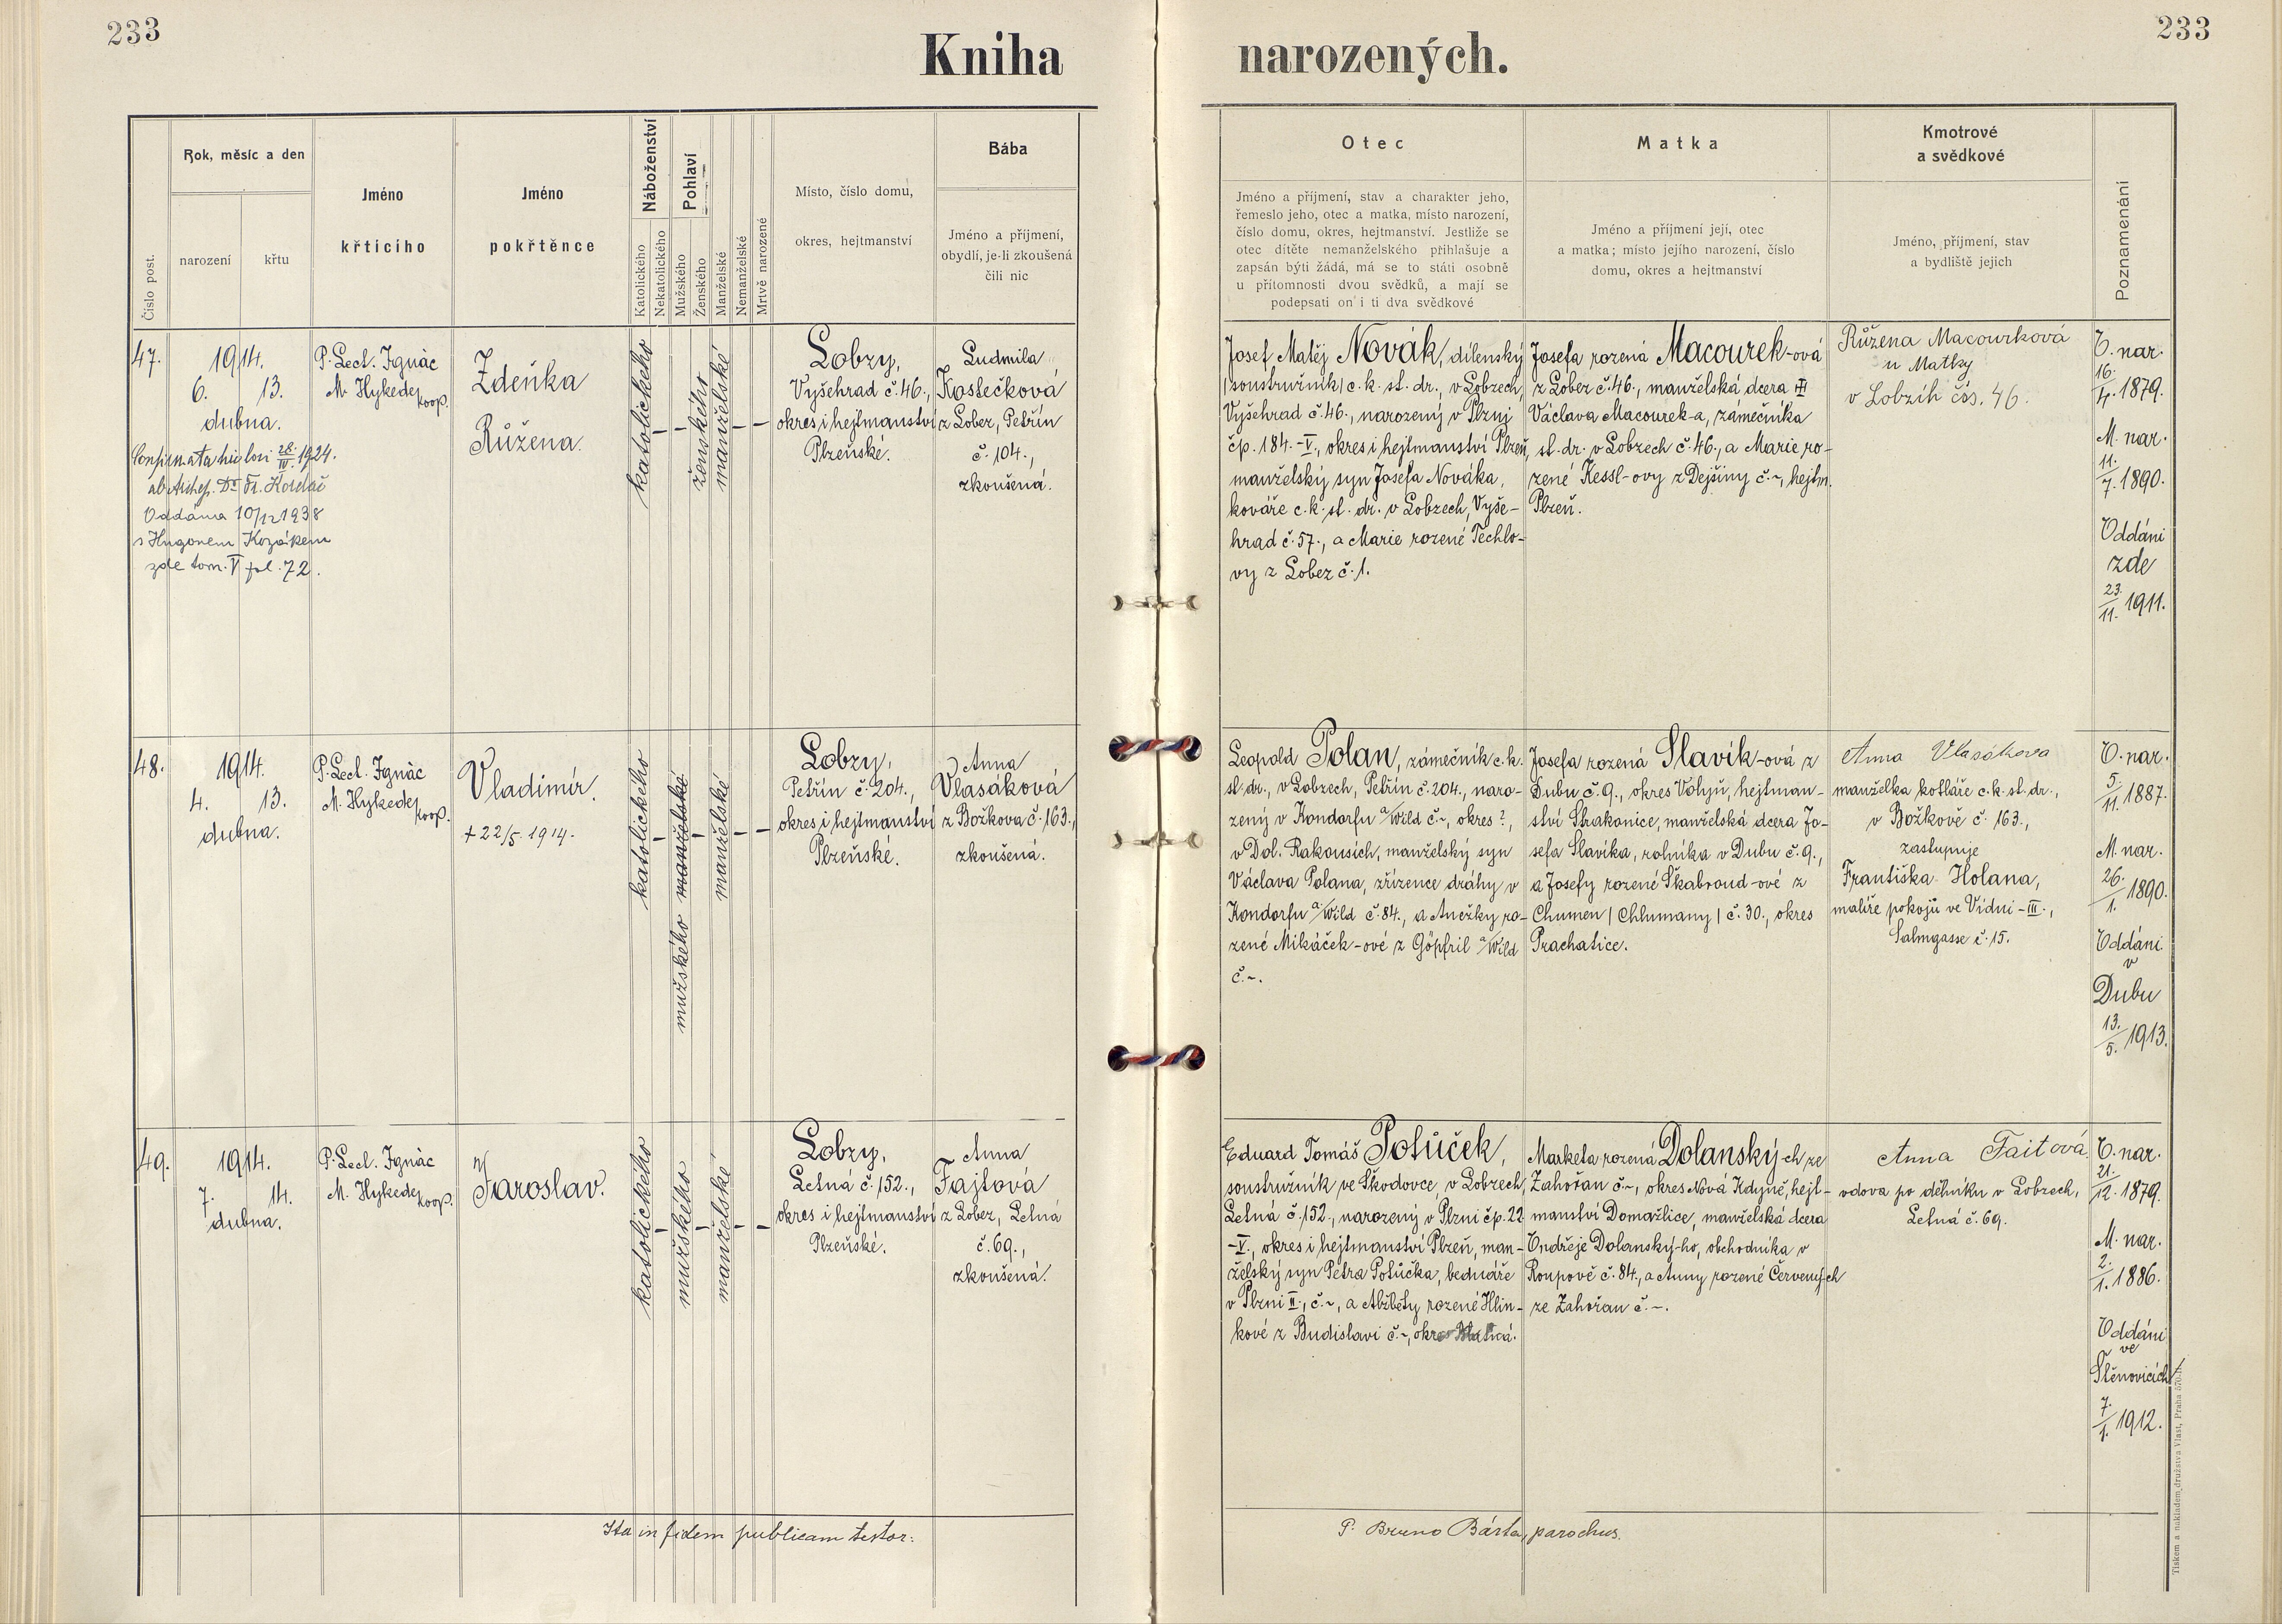 233
233
Kniha narozených.
Číslo post.
Rok, měsíc a den
narození
křtu
Jméno
křticího
Jméno
pokřtěnce
Náboženství
Katolického
Nekatolického
Pohlaví
Mužského
Ženského
Manželské
Nemanželské
Mrtvě narozené
Místo, číslo domu,
okres, hejtmanství
Bába
Jméno a příjmení,
obydlí, je-li zkoušená
čili nic
Otec
Jméno a příjmení, stav a charakter jeho,
řemeslo jeho, otec a matka, místo narození,
číslo domu, okres, hejtmanství. Jestliže se
otec dítěte nemanželského přihlašuje a
zapsán býti žádá, má se to státi osobně
u přítomnosti dvou svědků, a mají se
podepsati on i ti dva svědkové
Matka
Jméno a příjmení její, otec
a matka; místo jejího narození, číslo
domu, okres a hejtmanství
Kmotrové
a svědkové
Jméno, příjmení, stav
a bydliště jejich
Poznamenání
47.
1914.
6. 13.
dubna.
Confirmata hic loci 28./IV. 1924.
ab Archep. Dr Fr. Kordač
Oddána 10/12 1938
s Hugonem Kozákem
zde tom. V fol. 72.
P. Lect. Ignác
M. Hykede,
koop.
Zdeňka
Růžena.
katolického
–
–
ženského
manželské
–
–
Lobzy,
Vyšehrad č. 46.,
okres i hejtmanství
Plzeňské.
Ludmila
Kostečková
z Lobez, Petřín
č. 104.,
zkoušená.
Josef Matěj Novák, dílenský
/soustružník/ c. k. st. dr., v Lobzech,
Vyšehrad č. 46., narozený v Plzni
čp. 184.-V., okres i hejtmanství Plzeň,
manželský syn Josefa Nováka,
kováře c. k. st. dr. v Lobzech, Vyše-
hrad č. 57., a Marie rozené Techlo-
vy z Lobez č. 1.
Josefa rozená Macourek-ová
z Lobez č. 46., manželská dcera
Václava Macourek-a, zámečníka
st. dr. v Lobzech č. 46., a Marie ro-
zené Kessl-ovy z Dejšiny č. ~, hejtm.
Plzeň.
Růžena Macourková
u Matky
v Lobzíh čís. 46.
O. nar.
16./4. 1879.
M. nar.
11./7. 1890.
Oddáni
zde
23./11. 1911.
48.
1914.
4. 13.
dubna.
P. Lect. Ignác
M. Hykede,
koop.
Vladimír.
+ 22/5. 1914.
katolického
–
mužského manželské
–
manželské
–
–
Lobzy,
Petřín č. 204.,
okres i hejtmanství
Plzeňské.
Anna
Vlasáková
z Božkova č. 163.,
zkoušená.
Leopold Polan, zámečník c. k.
st. dr., v Lobzech, Petřín č. 204., naro-
zený v Kondorfu a/Wild č. ~, okres ?,
v Dol. Rakousích, manželský syn
Václava Polana, zřízence dráhy v
Kondorfu a/Wild č. 84., a Anežky ro-
zené Mikáček-ové z Göpfril a/Wild
č. ~.
Josefa rozená Slavík-ová z
Dubu č. 9., okres Volyň, hejtman-
ství Strakonice, manželská dcera Jo-
sefa Slavíka, rolníka v Dubu č. 9.,
a Josefy rozené Škabroud-ové z
Chumen /Chlumany/ č. 30., okres
Prachatice.
Anna Vlasákova
manželka kotláře c. k. st. dr.,
v Božkově č. 163.,
zastupuje
Františka Holana,
malíře pokojů ve Vídni-III.,
Salmgasse č. 15.
O. nar.
5./11. 1887.
M. nar.
26./1. 1890.
Oddáni
v
Dubu
13./5. 1913.
49.
1914.
7. 14.
dubna.
P. Lect. Ignác
M. Hykede,
koop.
Jaroslav.
katolického
–
mužského
–
manželské
–
–
Lobzy,
Letná č. 152.,
okres i hejtmanství
Plzeňské.
Anna
Fajtová
z Lobez, Letná
č. 69.,
zkoušená.
Eduard Tomáš Potůček,
soustružník ve Škodovce, v Lobzech,
Letná č. 152., narozený v Plzni čp. 22
-V., okres i hejtmanství Plzeň, man-
želský syn Petra Potůčka, bednáře
v Plzni II., č. ~, a Alžběty rozené Hlin-
kové z Budislavi č. ~, okres
Marketa rozená Dolanský-ch ze
Zahořan č. ~, okres Nová Kdyně, hejt-
manství Domažlice, manželská dcera
Ondřeje Dolanský-ho, obchodníka v
Roupově č. 84., a Anny rozené Červených
ze Zahořan č. ~.
Anna Faitová
vdova po dělníku v Lobzech,
Letná č. 69.
O. nar.
21./12. 1879.
M. nar.
2./1. 1886.
Oddáni
ve
Štěnovicích
7./1. 1912.
Ita in fidem publicam testor:
P. Bruno Bárta, parochus.
Tiskem a nákladem družstva Vlast, Praha 570-II.